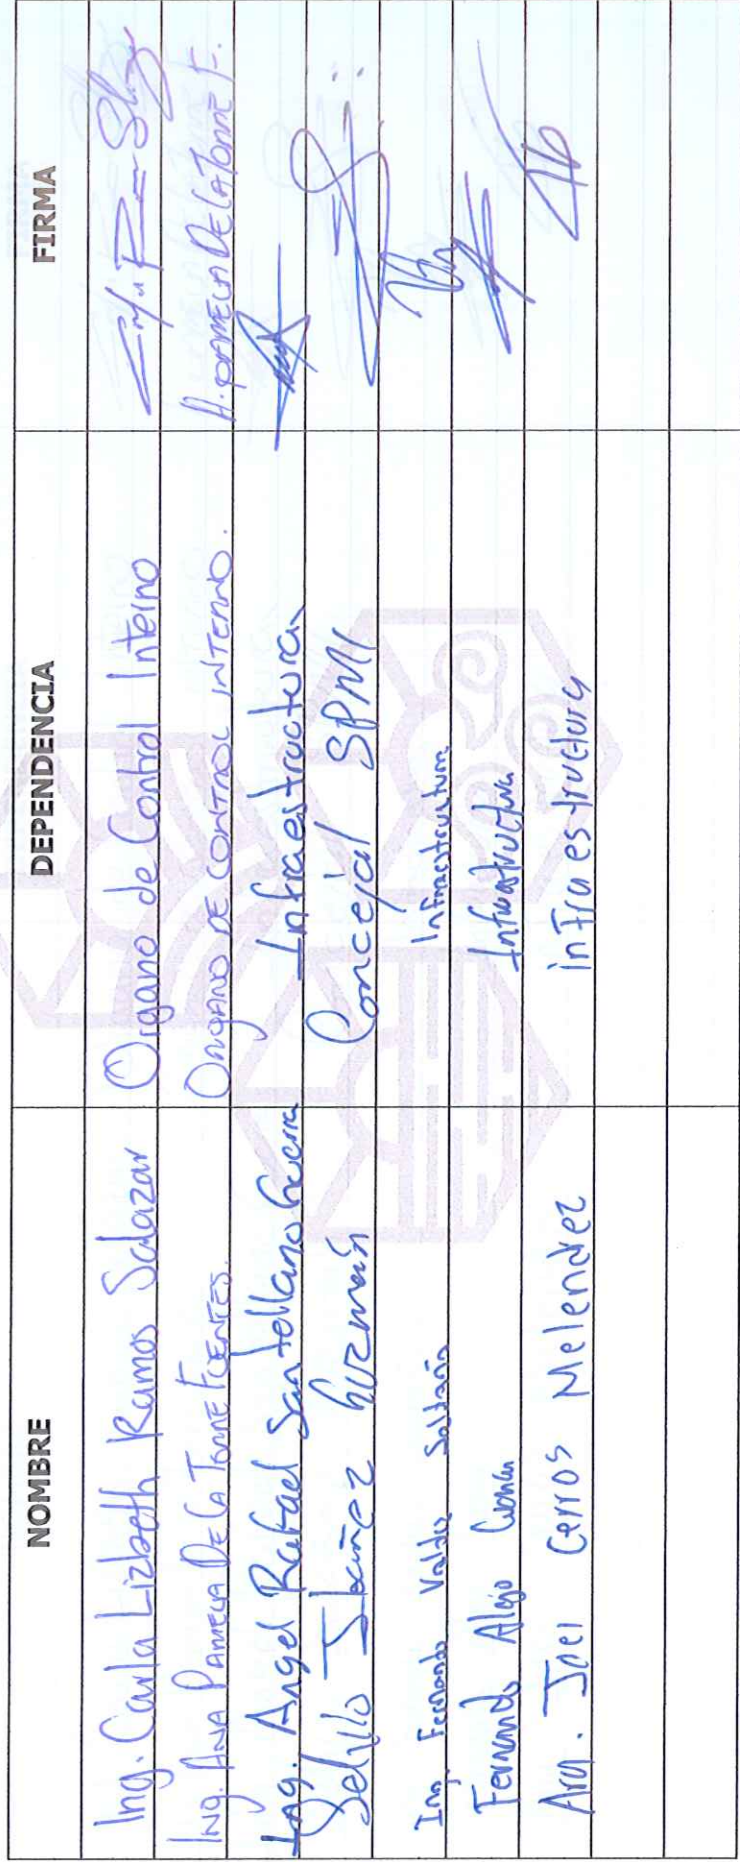 NOMBRE DEPENDENCIA FIRMA
Ing. Carla Lizbeth Ramos Salazar Organo de Control Interno
ING. ANA PAMELA DE LA TORRE FUENTES. ORGANO DE CONTROL INTERNO. A. PAMELA DE LA TORRE F.
Ing. Angel Rafael Santellano Guerra Infraestructura
Ibañez Guzmán Concejal SPMC
Ing. Fernando Valdez Saldaña Infraestructura
Fernando Alejo Infraestructura
Arq. Joel Cerros Melendez infraestructura